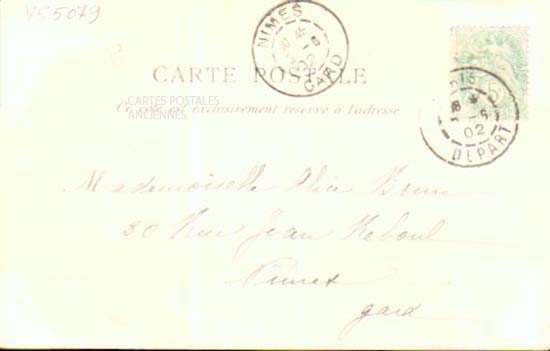 455079
NIMES
GARD
02
CARTE POSTALE
Ce côté est exclusivement réservé à l'adresse
CARTES POSTALES
ANCIENNES
02
DEPART
Mademoiselle Alice Brun
30 Rue Jean Reboul
Nimes
gard